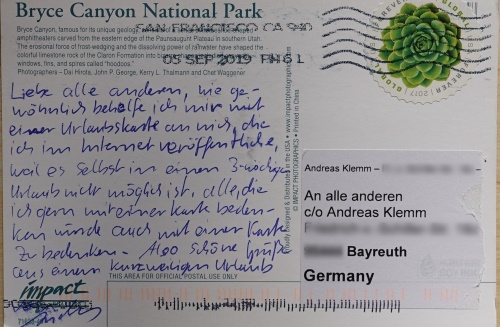 Bryce Canyon National Park
Bryce Canyon, famous for its unique geology,
amphitheaters carved from the eastern edge of the Paunsaugunt Plateau in southern Utah.
The erosional force of frost-wedging and the dissolving power of rainwater have shaped the
colorful limestone rock of the Claron Formation into
windows, fins, and spires called "hoodoos."
Photographers - Dai Hirota, John P. George, Kerry L. Thalmann and Chet Waggener
SAN FRANCISCO CA 940
05 SEP 2019 PM 6 L
GLOBAL
FOREVER
2017
Liebe alle anderen, wie ge-
wöhnlich behelfe ich mir mit
einer Urlaubskarte an mich, die
ich im Internet veröffentliche,
weil es selbst in einem 3-wöchigen
Urlaub nicht möglich ist, alle, die
ich gern mit einer Karte beden-
ken würde auch mit einer Karte
zu bedenken. Also schöne Grüße
aus einem kurzweiligen Urlaub
www.impactphotographics.com • Printed in China
Designed & Distributed in the USA •
© IMPACT PHOTOGRAPHICS •
Andreas Klemm –
An alle anderen
c/o Andreas Klemm
Bayreuth
Germany
THIS AREA FOR OFFICIAL POSTAL USE ONLY
impact